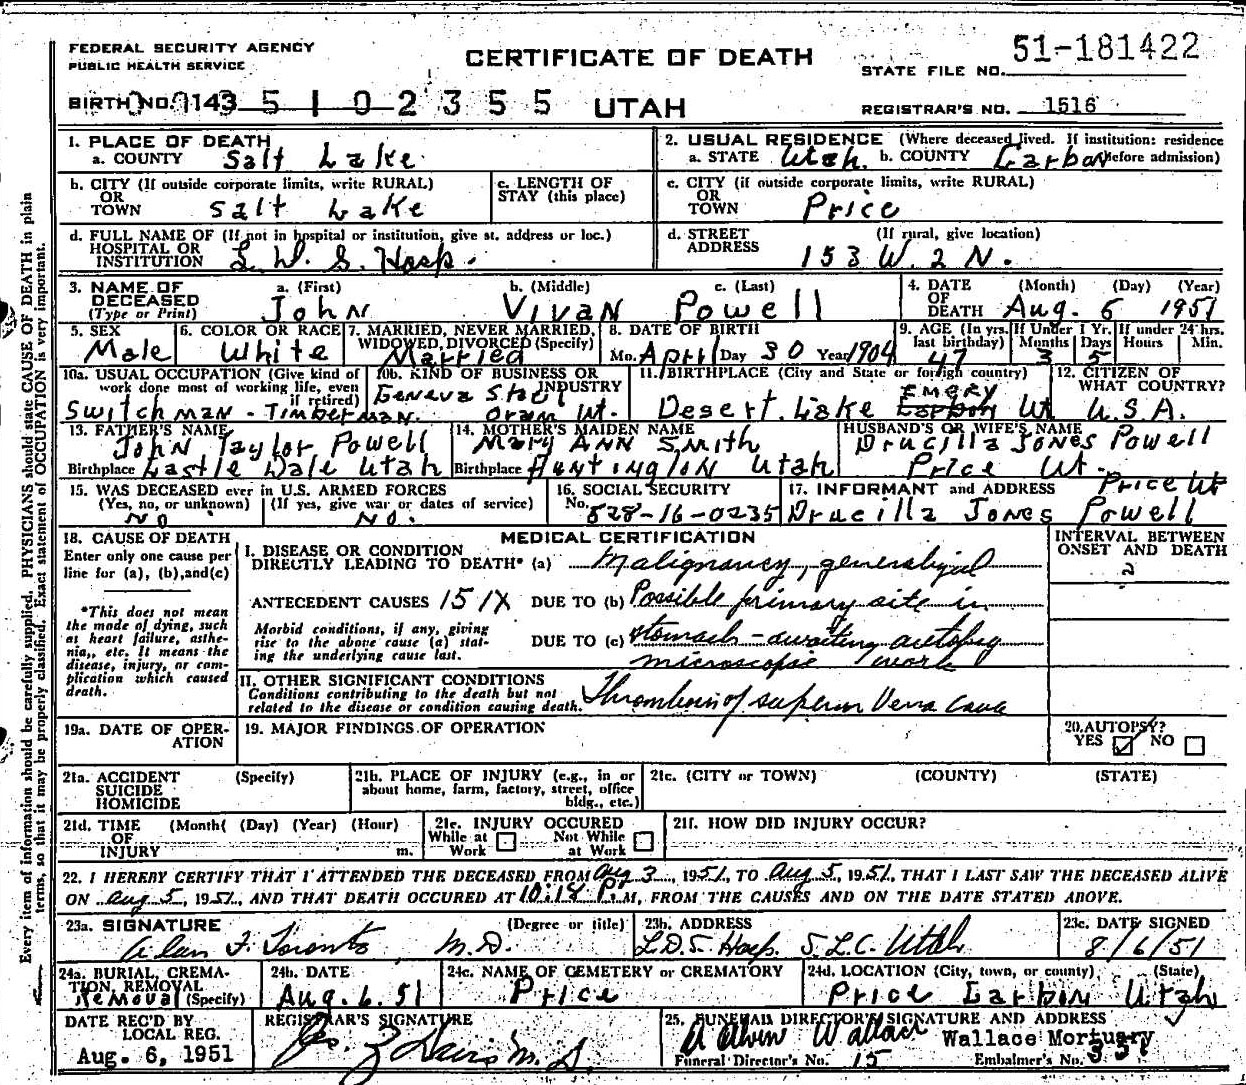 FEDERAL SECURITY AGENCY
PUBLIC HEALTH SERVICE
CERTIFICATE OF DEATH
51-181422
STATE FILE NO.
BIRTH NO. 143 5 1 0 2 3 5 5 UTAH
REGISTRAR'S NO. 1516
Every item of information should be carefully supplied. PHYSICIANS should state CAUSE OF DEATH in plain
terms, so that it may be properly classified. Exact statement of OCCUPATION is very important.
1. PLACE OF DEATH
a. COUNTY Salt Lake
2. USUAL RESIDENCE (Where deceased lived. If institution: residence
a. STATE Utah b. COUNTY Carbon before admission)
b. CITY (If outside corporate limits, write RURAL)
OR
TOWN Salt Lake
c. LENGTH OF
STAY (this place)
c. CITY (if outside corporate limits, write RURAL)
OR
TOWN Price
d. FULL NAME OF (If not in hospital or institution, give st. address or loc.)
HOSPITAL OR
INSTITUTION L. D. S. Hosp.
d. STREET (If rural, give location)
ADDRESS 153 W. 2 N.
3. NAME OF
DECEASED
(Type or Print)
a. (First) b. (Middle) c. (Last)
John Vivan Powell
4. DATE (Month) (Day) (Year)
OF
DEATH Aug. 5 1951
5. SEX
Male
6. COLOR OR RACE
White
7. MARRIED, NEVER MARRIED,
WIDOWED, DIVORCED (Specify)
Married
8. DATE OF BIRTH
Mo. April Day 30 Year 1904
9. AGE (In yrs.
last birthday)
47
If Under 1 Yr.
Months Days
3 5
If under 24 hrs.
Hours Min.
10a. USUAL OCCUPATION (Give kind of
work done most of working life, even
if retired)
Switchman - Timberman.
10b. KIND OF BUSINESS OR
INDUSTRY
Geneva Steel
Orem Ut.
11. BIRTHPLACE (City and State or foreign country)
Emery
Desert Lake Carbon Ut
12. CITIZEN OF
WHAT COUNTRY?
U.S.A.
13. FATHER'S NAME
John Taylor Powell
Birthplace Castle Dale Utah
14. MOTHER'S MAIDEN NAME
Mary Ann Smith
Birthplace Huntington Utah
HUSBAND'S OR WIFE'S NAME
Drucilla Jones Powell
Price Ut.
15. WAS DECEASED ever in U.S. ARMED FORCES
(Yes, no, or unknown) (If yes, give war or dates of service)
No No.
16. SOCIAL SECURITY
No. 528-16-0235
17. INFORMANT and ADDRESS Price Ut
Drucilla Jones Powell
18. CAUSE OF DEATH
Enter only one cause per
line for (a), (b), and (c)
*This does not mean
the mode of dying, such
as heart failure, asthe-
nia,, etc. It means the
disease, injury, or com-
plication which caused
death.
MEDICAL CERTIFICATION
I. DISEASE OR CONDITION
DIRECTLY LEADING TO DEATH* (a) Malignancy, generalized
ANTECEDENT CAUSES 151X DUE TO (b) Possible primary site in
Morbid conditions, if any, giving
rise to the above cause (a) stat-
ing the underlying cause last.
DUE TO (c) stomach - awaiting autopsy
microscopic work
INTERVAL BETWEEN
ONSET AND DEATH
?
II. OTHER SIGNIFICANT CONDITIONS
Conditions contributing to the death but not
related to the disease or condition causing death.
Thrombosis of superior Vena Cava
19a. DATE OF OPER-
ATION
19. MAJOR FINDINGS OF OPERATION
20. AUTOPSY?
YES NO
21a. ACCIDENT (Specify)
SUICIDE
HOMICIDE
21b. PLACE OF INJURY (e.g., in or
about home, farm, factory, street, office
bldg., etc.)
21c. (CITY or TOWN) (COUNTY) (STATE)
21d. TIME (Month( (Day) (Year) (Hour)
OF
INJURY m.
21e. INJURY OCCURED
While at Not While
Work at Work
21f. HOW DID INJURY OCCUR?
22. I HEREBY CERTIFY THAT I ATTENDED THE DECEASED FROM Aug 3, 1951, TO Aug 5, 1951, THAT I LAST SAW THE DECEASED ALIVE
ON Aug 5, 1951, AND THAT DEATH OCCURED AT 10:18 P.M, FROM THE CAUSES AND ON THE DATE STATED ABOVE.
23a. SIGNATURE (Degree or title)
Alan F. Toronto, M.D.
23b. ADDRESS
L.D.S Hosp. S.L.C. Utah
23c. DATE SIGNED
8/6/51
24a. BURIAL, CREMA-
TION, REMOVAL
Removal (Specify)
24b. DATE
Aug. 6. 51
24c. NAME OF CEMETERY or CREMATORY
Price
24d. LOCATION (City, town, or county) (State)
Price Carbon Utah
DATE REC'D BY
LOCAL REG.
Aug. 6, 1951
REGISTRAR'S SIGNATURE
M. D.
25. FUNERAL DIRECTOR'S SIGNATURE AND ADDRESS
A Alvin Wallace Wallace Mortuary
Funeral Director's No. 15 Embalmer's No. 337